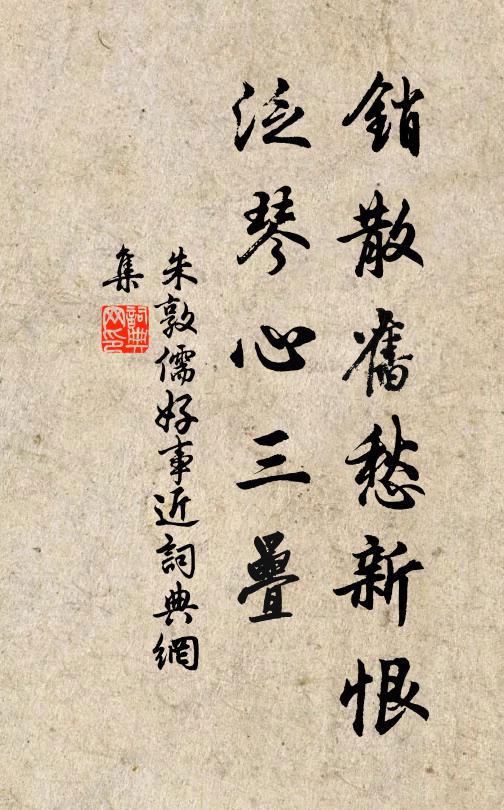 銷散舊愁新恨
泛琴心三疊
朱敦儒好事近詞典網
集
詞典
网印